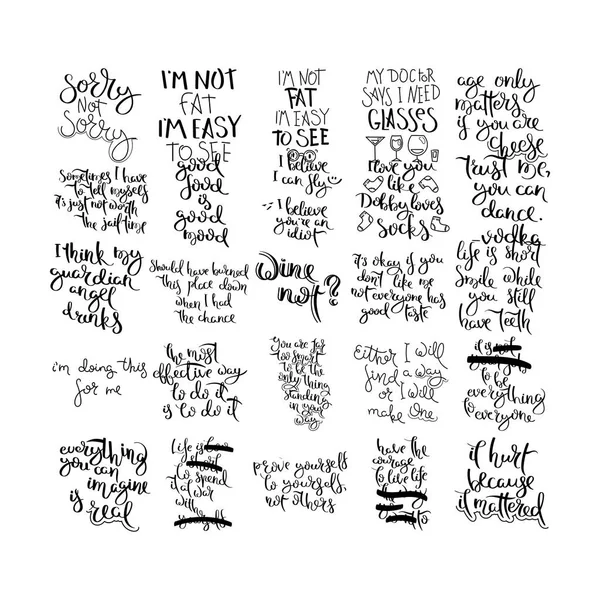 Sorry
Not
Sorry
I'M NOT
FAT
I'M EASY
TO SEE
I'M NOT
FAT
I'M EASY
TO SEE
MY DOCTOR
SAYS I NEED
GLASSES
age only
matters
if you are
cheese
Sometimes I have
to tell myself
it's just not worth
the jail time
good
food
is
good
mood
I believe
I can fly
I believe
you're an
idiot
I love you
like
Dobby loves
Socks
trust me,
you can
dance.
-vodka
I think my
guardian
angel
drinks
Should have burned
this place down
when I had
the chance
Wine
not?
it's okay if you
don't like me
not everyone has
good taste
life is short
smile while
you still
have teeth
i'm doing this
for me
the most
effective way
to do it
is to do it
You are far
too smart
to be the
only thing
standing
in your
way
Either I will
find a way
or I will
make one
it is
to be
everything
to everyone
everything
you can
imagine
is real
Life is
to spend
it at war
with
prove yourself
to yourself,
not others
have the
courage
to live life
to
it hurt
because
it mattered